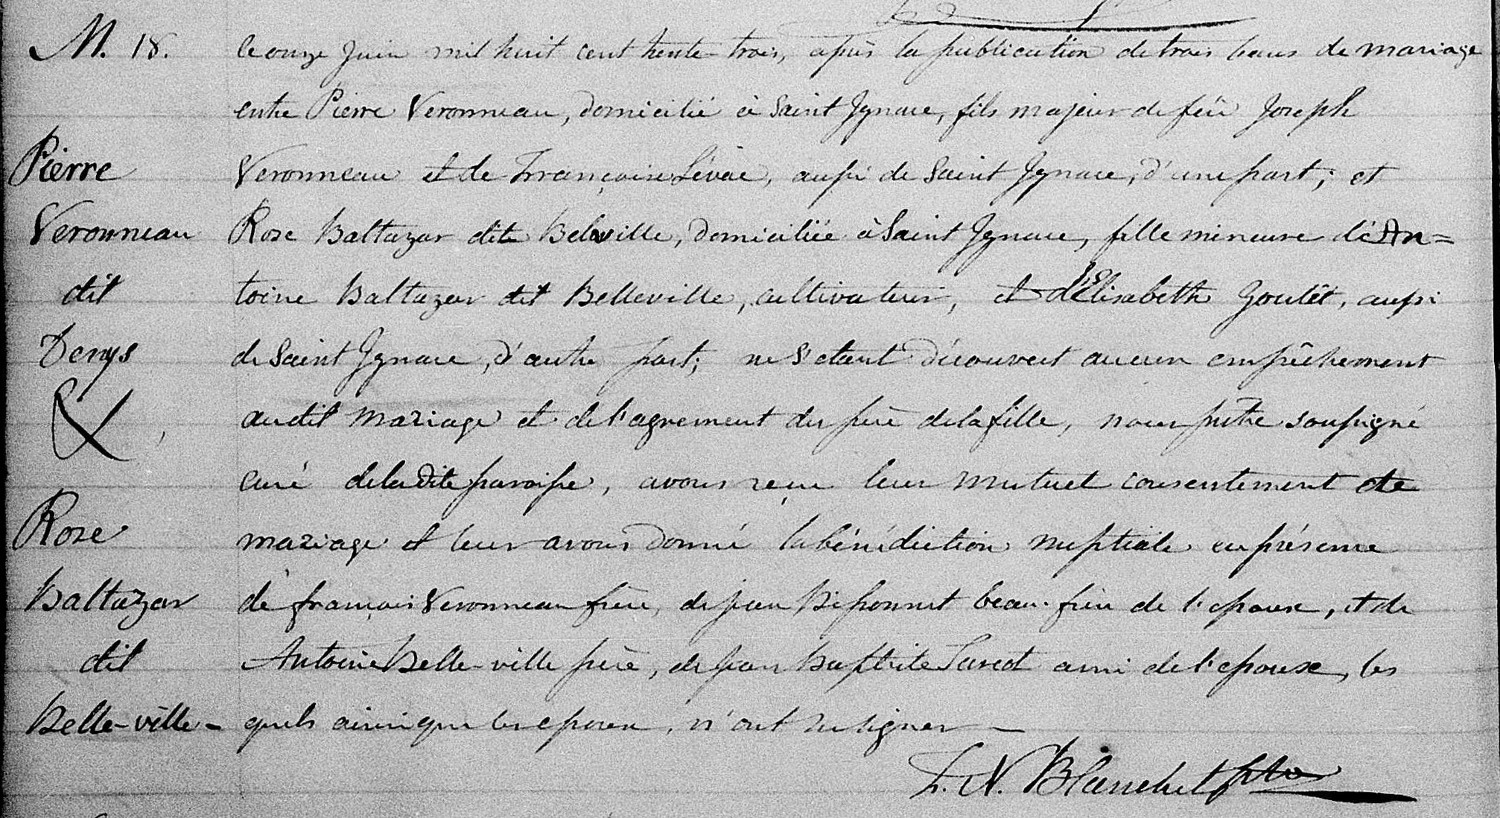 M. 18.
Pierre
Veronneau
dit
Denys
&
Rose
Baltazar
dit
Belle-ville-
le onze Juin mil huit cent trente-trois, après la publication de trois bans de mariage
entre Pierre Veronneau, domicilié à Saint Ignace, fils majeur de feu Joseph
Veronneau et de Françoise Lévêe, aussi de Saint Ignace, d'une part; et
Rose Baltazar dite Belleville, domiciliée à Saint Ignace, fille mineure d'An=
toine Baltazar dit Belleville, cultivateur, et d'Elisabeth Goulêt, aussi
de Saint Ignace, d'autre part; ne s'etant découvert aucun empêchement
audit mariage et de l'agrement du père de la fille, nous prêtre soussigné
curé de la dite paroisse, avons reçu leur mutuel consentement de
mariage et leur avons donné la bénédiction nuptiale en présence
de françois Veronneau frère, de jean Bissonnet beau-frère de l'epoux, et de
Antoine Belle-ville père, de jean Baptiste ami de l'epouse, les
quels ainsi que les epoux, n'ont su signer —
F. N. Blanchet ptre